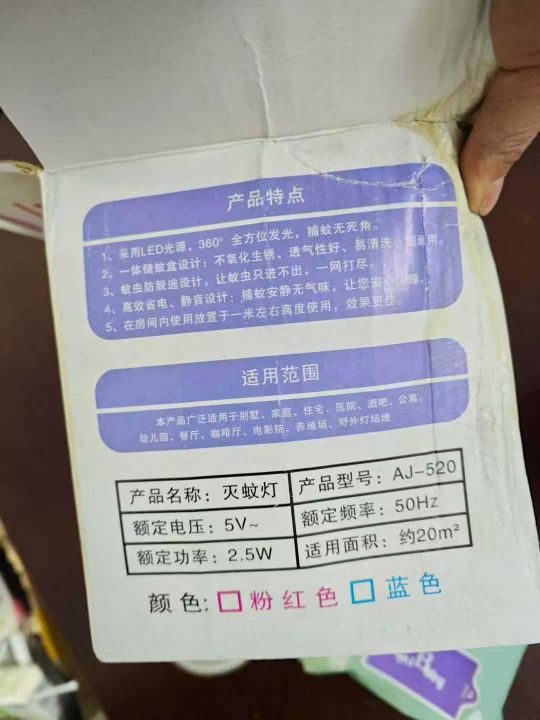 产品特点
1、采用LED光源，360°全方位发光，捕蚊无死角。
2、一体储蚊盒设计：不氧化生锈、透气性好、易清洗、超耐用。
3、蚊虫防脱逃设计，让蚊虫只进不出，一网打尽。
4、高效省电、静音设计：捕蚊安静无气味，让您安睡。
5、在房间内使用放置于一米左右高度使用，效果更佳。
适用范围
本产品广泛适用于别墅、家庭、住宅、医院、酒吧、公寓、
幼儿园、餐厅、咖啡厅、电影院、养殖场、野外灯场地
产品名称：灭蚊灯 产品型号：AJ-520
额定电压：5V~ 额定频率：50Hz
额定功率：2.5W 适用面积：约20m²
颜色:□粉红色□蓝色